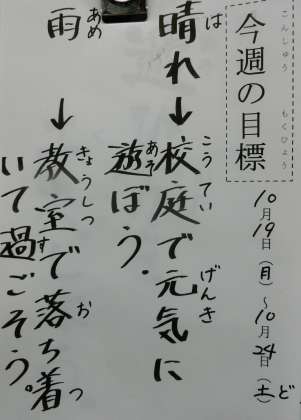 今週の目標
こんしゅう もくひょう
10月19日(月)~10月24日(土)ど
晴れ→校庭で元気に
は こうてい げんき
遊ぼう。
あそ
雨→教室で落ち着
あめ きょうしつ お つ
いて過ごそう。
す